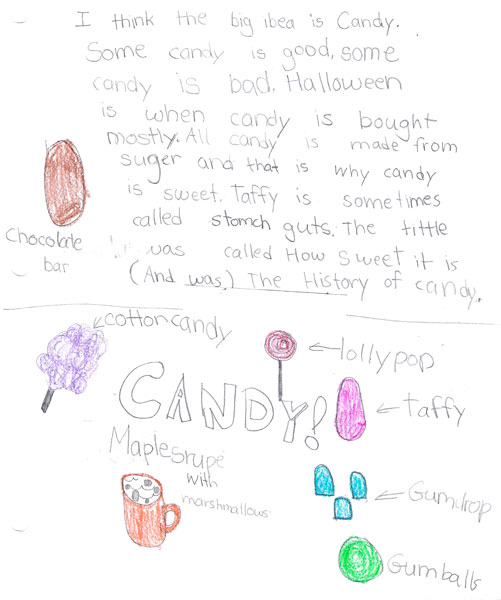 I think the big ibea is Candy.
Some candy is good, some
candy is bad. Halloween
is when candy is bought
mostly. All candy is made from
suger and that is why candy
is sweet. Taffy is sometimes
called stomch guts. The tittle
was called How sweet it is
(And was.) The History of candy.
Chocolate
bar
cottoncandy
lollypop
CANDY!
taffy
Maplesrupe
with
marshmallows
Gumdrop
Gumballs